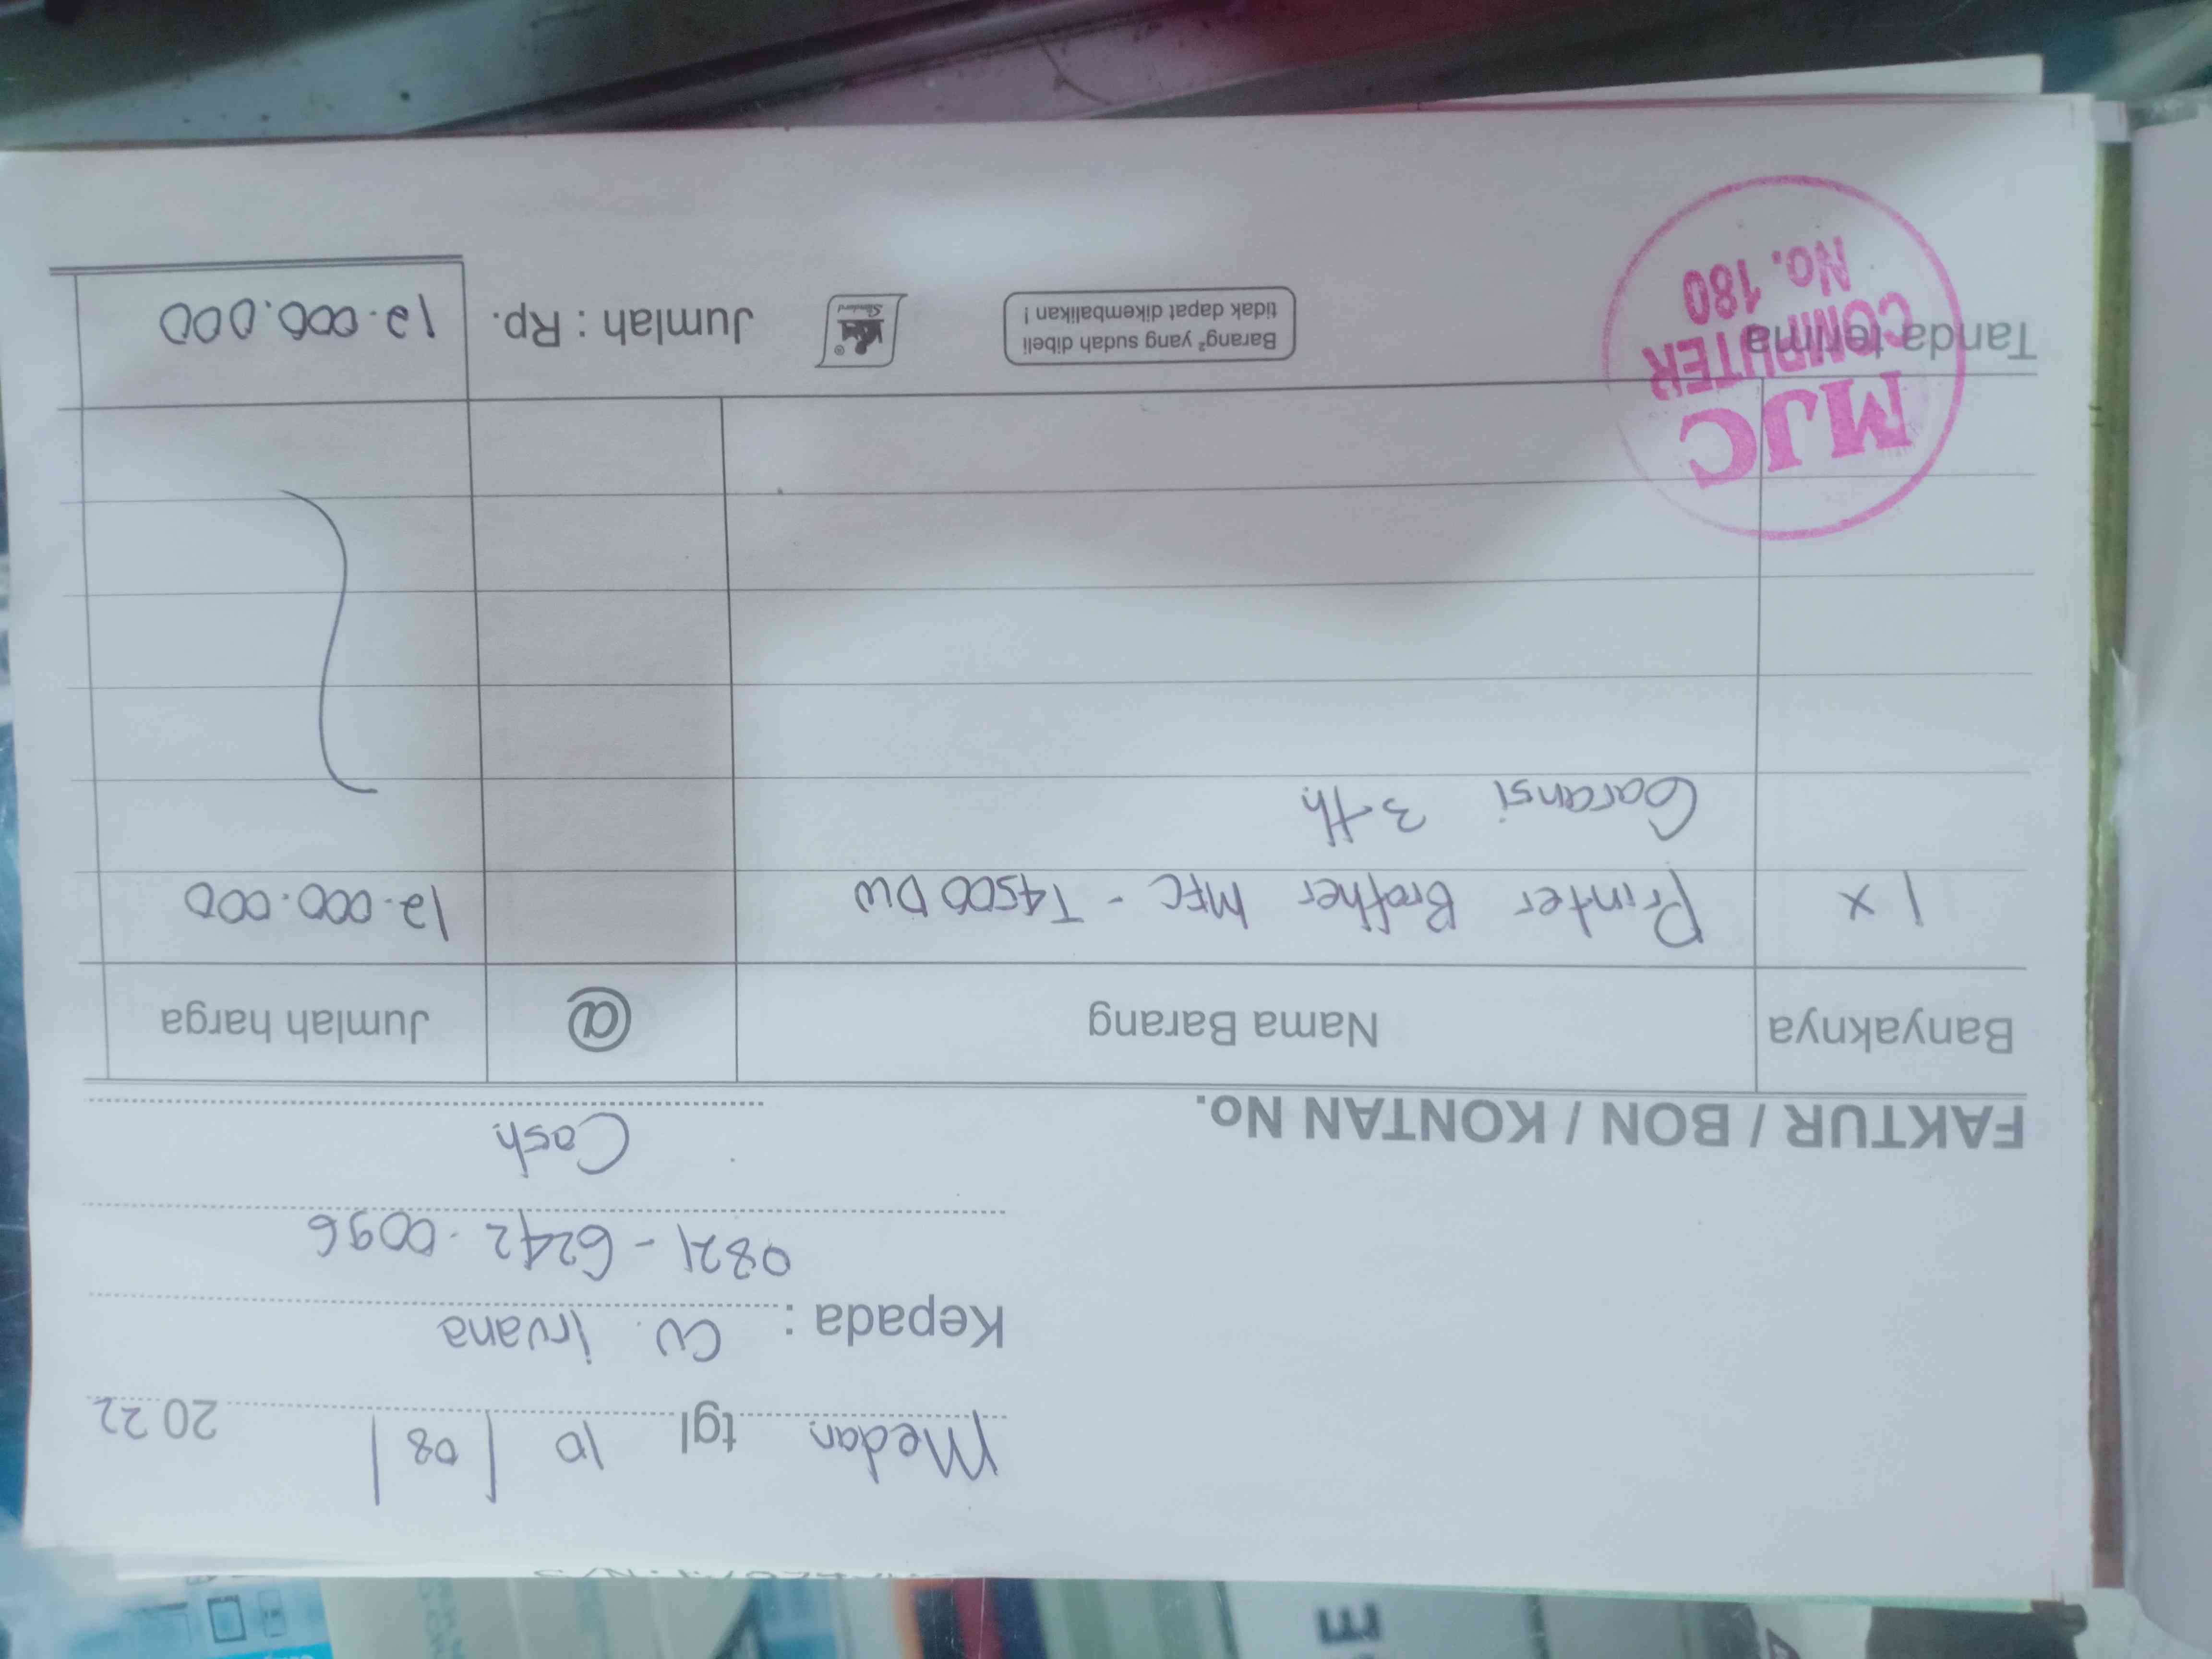 Medan tgl 10 / 08 / 2022
Kepada : CV. Irvana
0821 - 6242 - 0096
Cash
FAKTUR / BON / KONTAN No.
Banyaknya Nama Barang @ Jumlah harga
1 x Printer Brother MFC - T4500 DW 12.000.000
Garansi 3 th
Tanda terima
MJC
COMPUTER
No. 180
Barang² yang sudah dibeli
tidak dapat dikembalikan !
Jumlah : Rp. 12.000.000